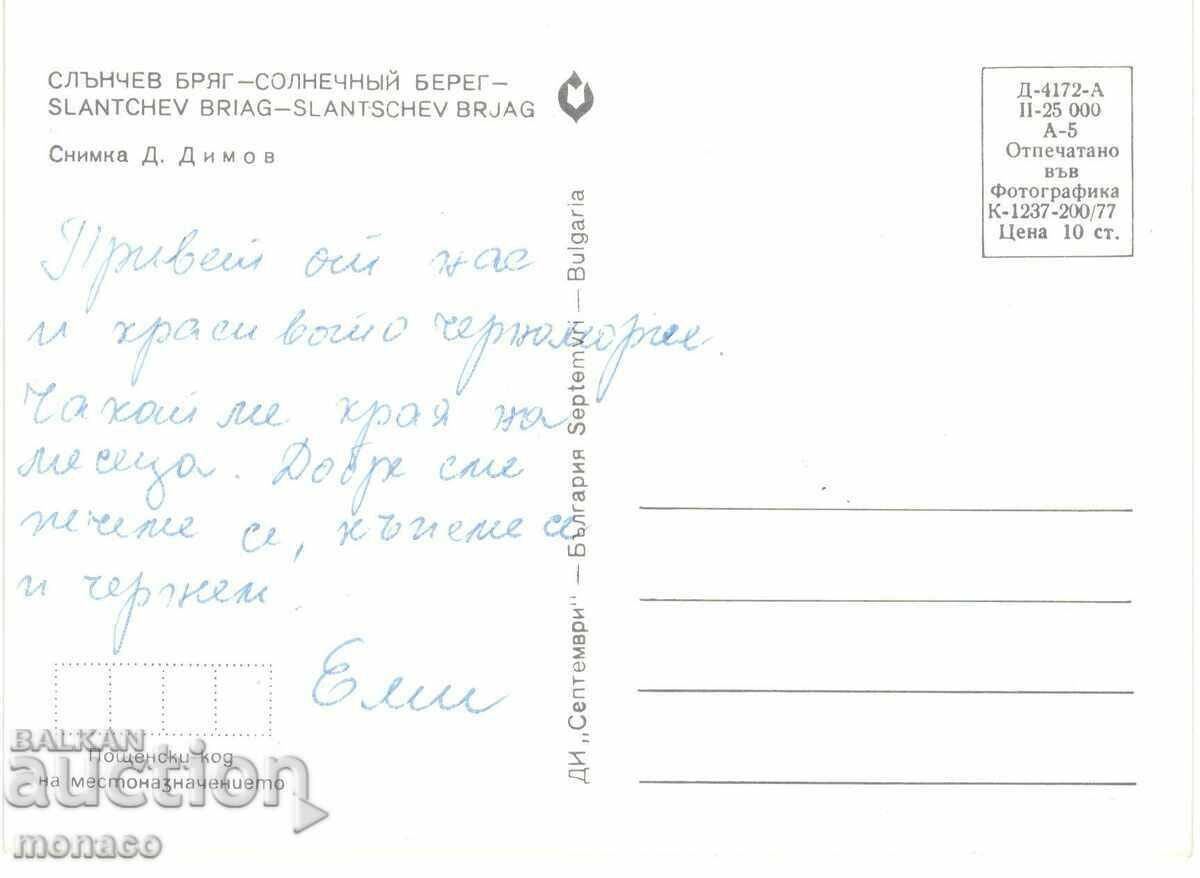 СЛЪНЧЕВ БРЯГ—СОЛНЕЧНЫЙ БЕРЕГ—
SLANTCHEV BRIAG—SLANTSCHEV BRJAG
Снимка Д. Димов
Привет от нас
и красивото черноморие.
Чакай ме края на
месеца. Добре сме
печеме се, къпеме се
и чернеем.
Ели
Пощенски код
на местоназначението
ДИ „Септември" — България Septemvri — Bulgaria
Д-4172-А
II-25 000
А-5
Отпечатано
във
Фотографика
К-1237-200/77
Цена 10 ст.
BALKAN
auction
monaco